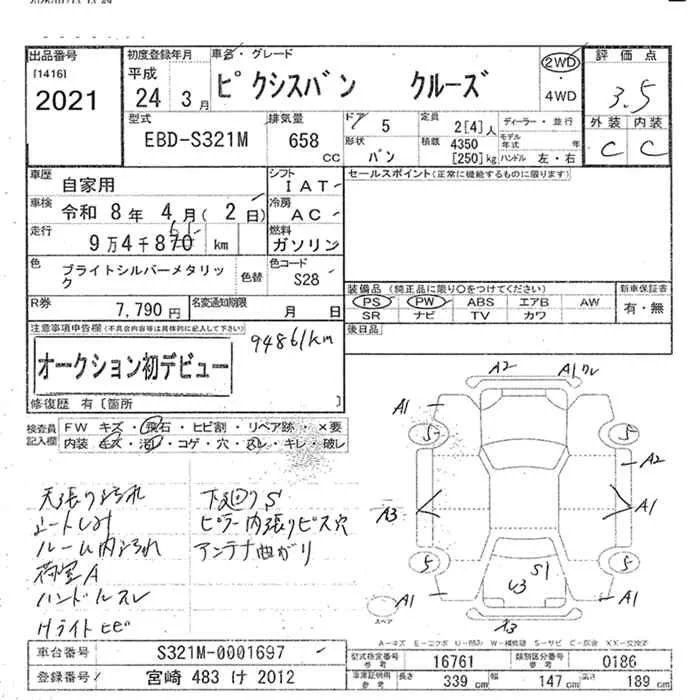 出品番号
[1416]
2021
初度登録年月
平成
24 3 月
車名・グレード
ピクシスバン クルーズ
2WD
・
4WD
評価点
3.5
外装 内装
C C
型式
EBD-S321M
排気量
658
CC
ドア
5
形状
バン
定員
2[4]人
積載
4350
[250]kg
ディーラー・並行
モデル年式 年
ハンドル 左・右
車歴
自家用
シフト
IAT
セールスポイント(正常に機能するものに限ります)
車検
令和 8 年 4 月( 2 日)
冷房
AC
走行
9万4千870 km
61
燃料
ガソリン
色
ブライトシルバーメタリック
色替
色コード
S28
装備品(純正品に限り○をつけてください)
PS PW ABS エアB AW
SR ナビ TV カワ
新車保証書
有・無
R券
7,790 円
名変通知期限
月 日
後日品
注意事項申告欄(不具合内容等は具体的に記入して下さい)
94861km
オークション初デビュー
修復歴 有〔箇所 〕
検査員記入欄
FW キズ・飛石・ヒビ割・リペア跡・×要
内装 キズ・汚・コゲ・穴・スレ・キレ・破レ
天張りよごれ
シートしみ
ルーム内よごれ
荷室A
ハンドルスレ
Hライトヒビ
下廻りS
ピラー内張りビス穴
アンテナ曲がり
A2
A1ワレ
A1
5
5
A2
A3
A1
5
5
S1
U3
A1
A1
A3
スペア
A-キズ E-エクボ U-凹み W-補修跡 S-サビ C-腐食 XX-交換済
車台番号
S321M-0001697
登録番号
宮崎 483 け 2012
型式指定番号
参考
16761
類別区分番号
参考
0186
車庫証明用
参考
長さ
339 cm
幅
147 cm
高さ
189 cm